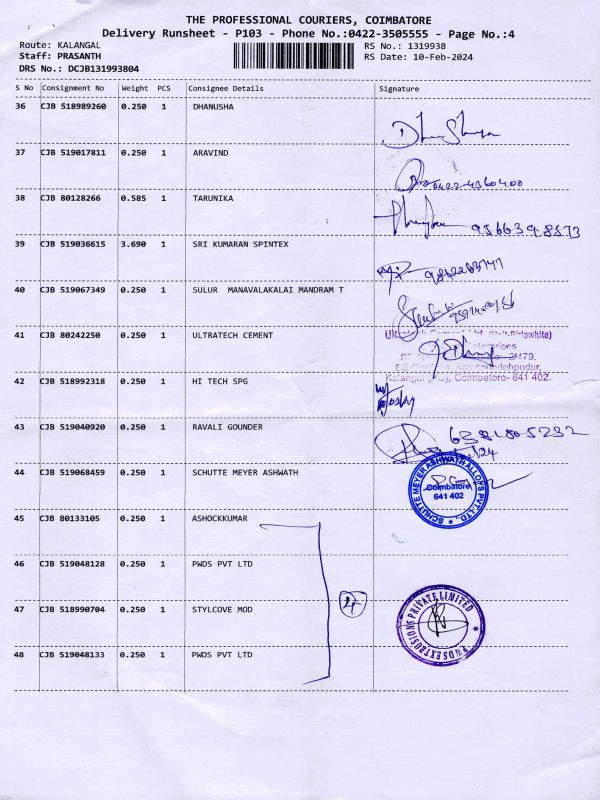 THE PROFESSIONAL COURIERS, COIMBATORE
Delivery Runsheet - P103 - Phone No.:0422-3505555 - Page No.:4
Route: KALANGAL RS No.: 1319938
Staff: PRASANTH RS Date: 10-Feb-2024
DRS No.: DCJB131993804
S No Consignment No Weight PCS Consignee Details Signature
36 CJB 518989260 0.250 1 DHANUSHA
37 CJB 519017811 0.250 1 ARAVIND
38 CJB 80128266 0.585 1 TARUNIKA
9566398573
39 CJB 519036615 3.690 1 SRI KUMARAN SPINTEX
40 CJB 519067349 0.250 1 SULUR MANAVALAKALAI MANDRAM T
41 CJB 80242250 0.250 1 ULTRATECH CEMENT
(Unit:Birlawhite)
Kalangal Coimbatore- 641 402.
42 CJB 518992318 0.250 1 HI TECH SPG
43 CJB 519040920 0.250 1 RAVALI GOUNDER
44 CJB 519068459 0.250 1 SCHUTTE MEYER ASHWATH
SCHUTTE MEYER ASHWATH ALLOYS PVT. LTD.,
Coimbatore
641 402
45 CJB 80133105 0.250 1 ASHOCKKUMAR
46 CJB 519048128 0.250 1 PWDS PVT LTD
47 CJB 518990704 0.250 1 STYLCOVE MOD
4
PWDS EXTRUSIONS PRIVATE LIMITED
48 CJB 519048133 0.250 1 PWDS PVT LTD